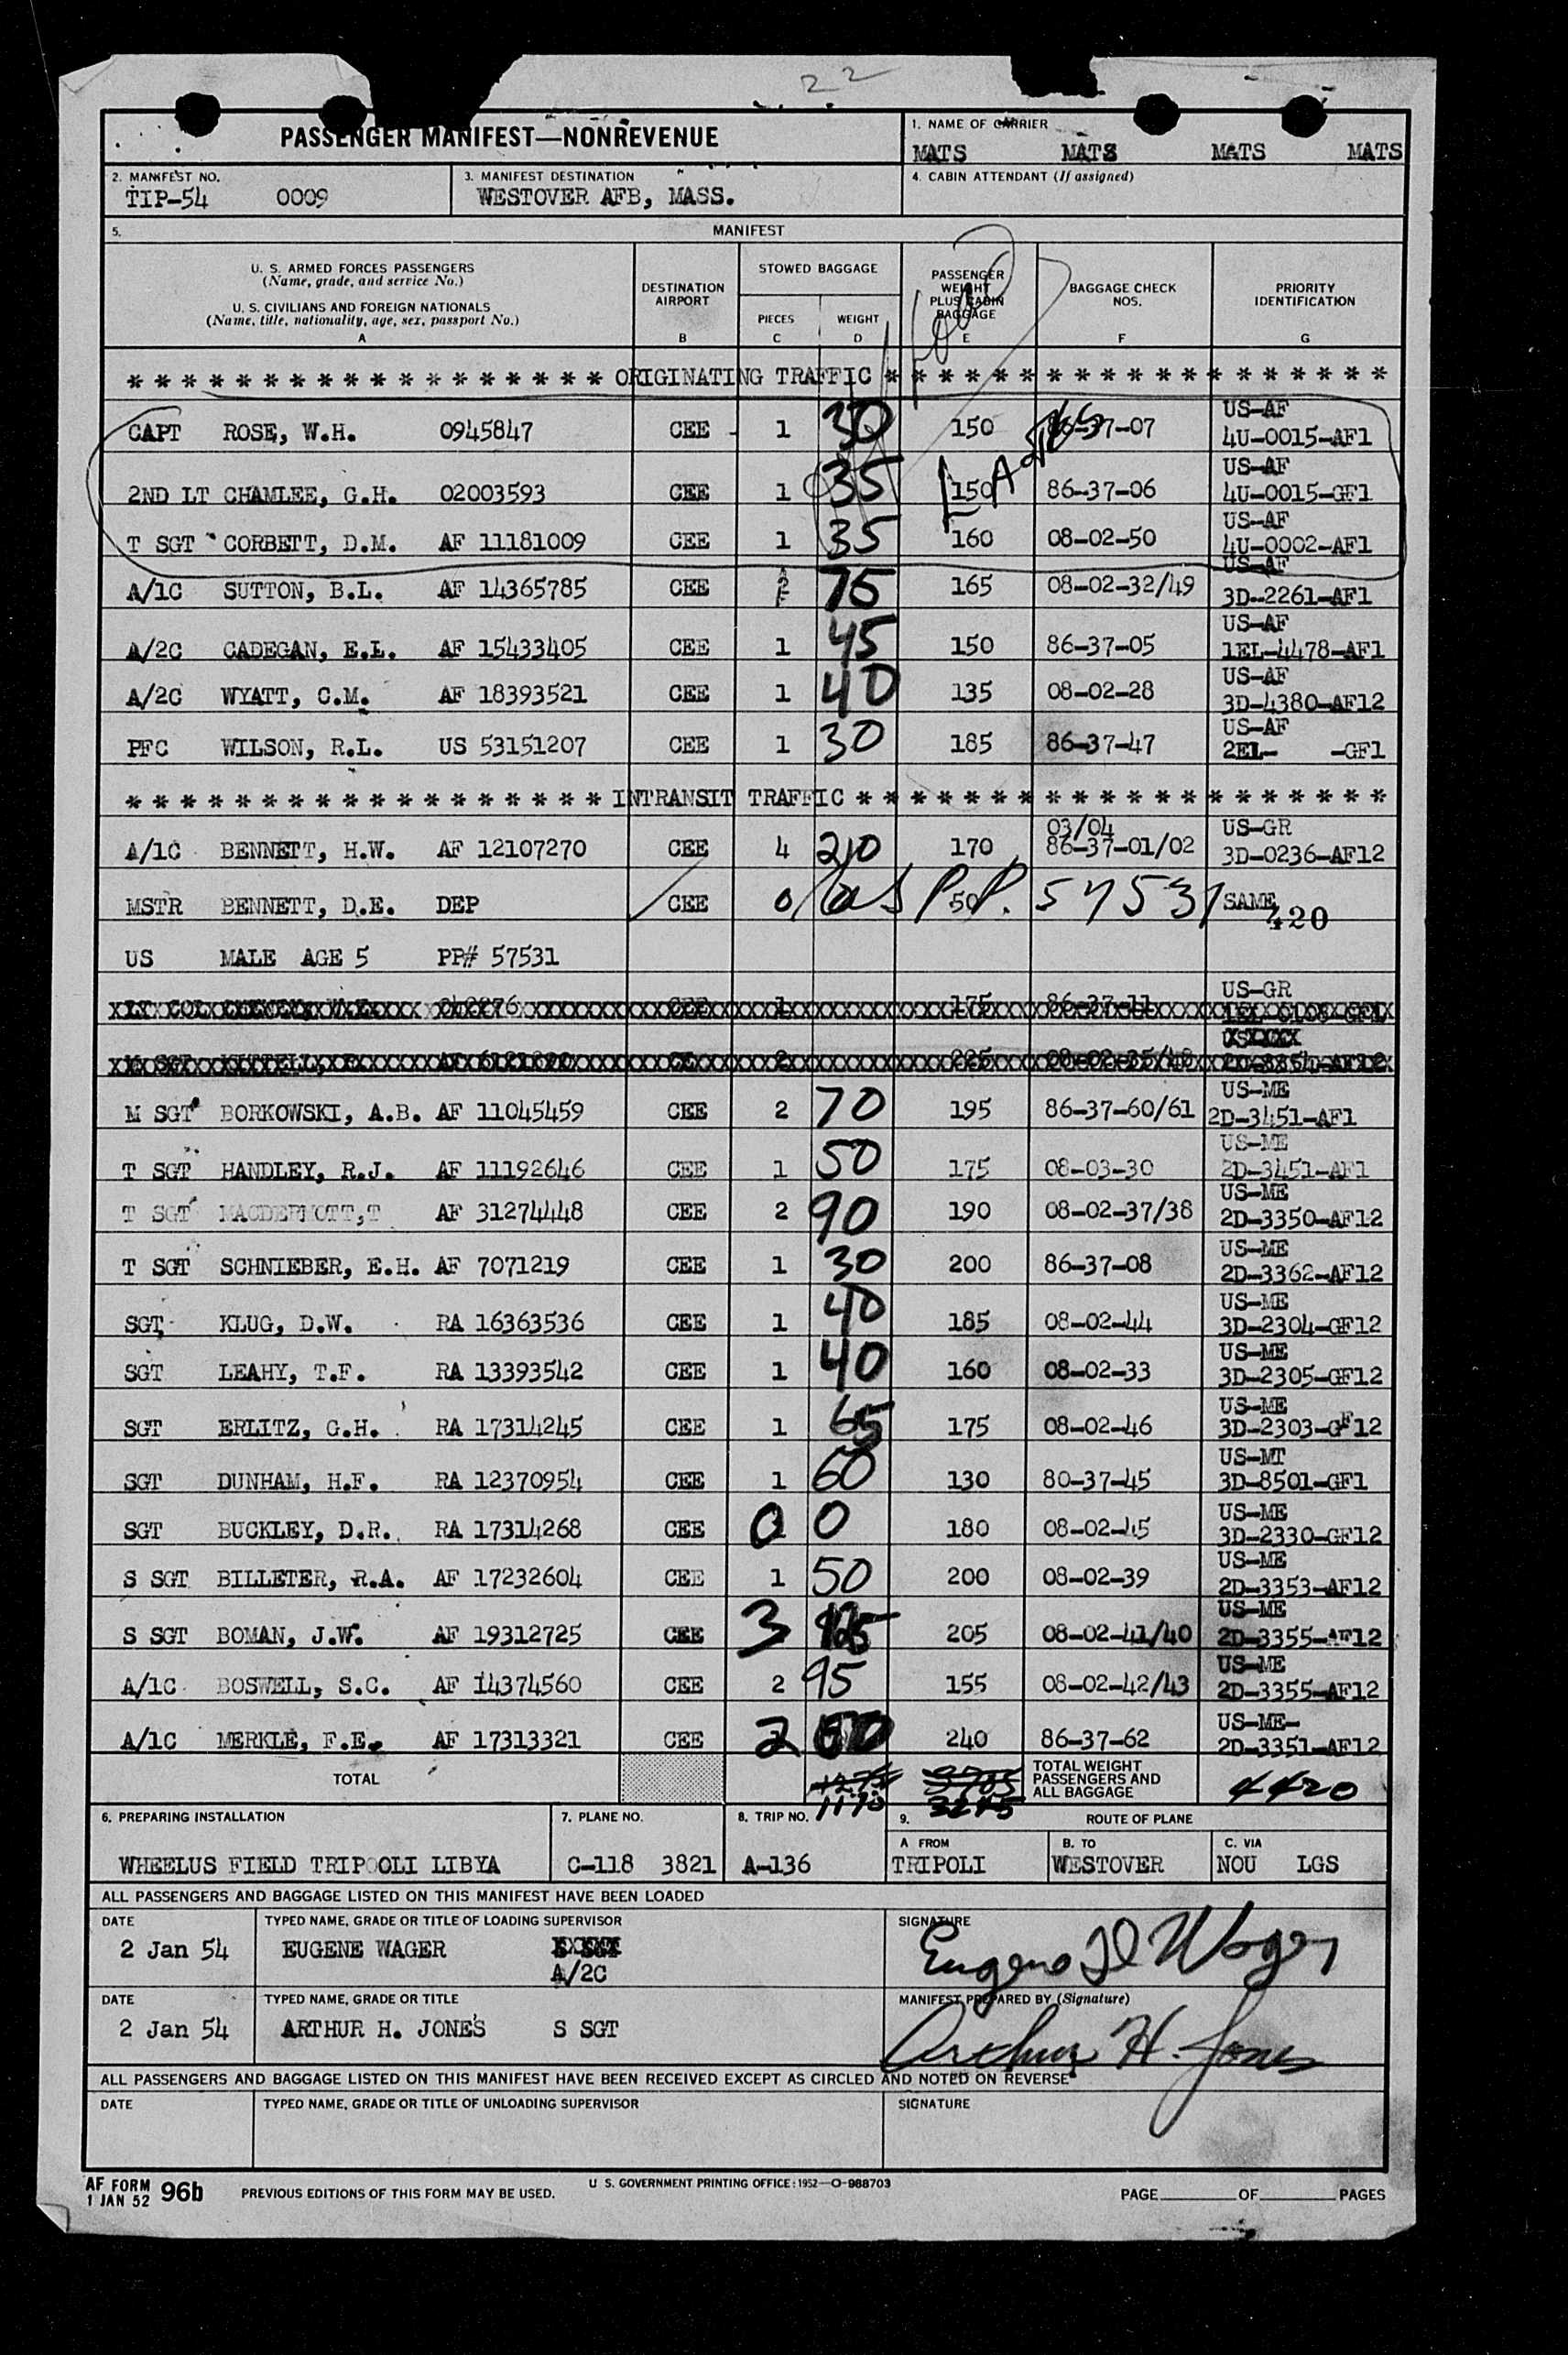 22
PASSENGER MANIFEST—NONREVENUE
1. NAME OF CARRIER
MATS MATS MATS MATS
2. MANIFEST NO.
TIP-54 0009
3. MANIFEST DESTINATION
WESTOVER AFB, MASS.
4. CABIN ATTENDANT (If assigned)
5. MANIFEST
U. S. ARMED FORCES PASSENGERS
(Name, grade, and service No.)
U. S. CIVILIANS AND FOREIGN NATIONALS
(Name, title, nationality, age, sex, passport No.)
A
DESTINATION
AIRPORT
B
STOWED BAGGAGE
PIECES
C
WEIGHT
D
PASSENGER
WEIGHT
PLUS CABIN
BAGGAGE
E
BAGGAGE CHECK
NOS.
F
PRIORITY
IDENTIFICATION
G
* * * * * * * * * * * * * * * * * * ORIGINATING TRAFFIC * * * * * * * * * * * * * * * * * * *
US-AF
CAPT ROSE, W.H. 0945847 CEE 1 30 150 86-37-07 4U-0015-AF1
US-AF
2ND LT CHAMLEE, G.H. 02003593 CEE 1 35 150 86-37-06 4U-0015-GF1
US-AF
T SGT CORBETT, D.M. AF 11181009 CEE 1 35 160 08-02-50 4U-0002-AF1
US-AF
A/1C SUTTON, B.L. AF 14365785 CEE 2 75 165 08-02-32/49 3D-2261-AF1
US-AF
A/2C CADEGAN, E.L. AF 15433405 CEE 1 45 150 86-37-05 1EL-4478-AF1
US-AF
A/2C WYATT, C.M. AF 18393521 CEE 1 40 135 08-02-28 3D-4380-AF12
US-AF
PFC WILSON, R.L. US 53151207 CEE 1 30 185 86-37-47 2EL- -GF1
* * * * * * * * * * * * * * * * * * INTRANSIT TRAFFIC * * * * * * * * * * * * * * * * * * * *
03/04 US-GR
A/1C BENNETT, H.W. AF 12107270 CEE 4 210 170 86-37-01/02 3D-0236-AF12
MSTR BENNETT, D.E. DEP CEE 0 50 P.P. 57531 SAME
420
US MALE AGE 5 PP# 57531
US-GR
LT COL 175 86-37-11
M SGT 2 225
US-ME
M SGT BORKOWSKI, A.B. AF 11045459 CEE 2 70 195 86-37-60/61 2D-3451-AF1
US-ME
T SGT HANDLEY, R.J. AF 11192646 CEE 1 50 175 08-03-30 2D-3451-AF1
US-ME
T SGT MACDERMOTT,T AF 31274448 CEE 2 90 190 08-02-37/38 2D-3350-AF12
US-ME
T SGT SCHNIEBER, E.H. AF 7071219 CEE 1 30 200 86-37-08 2D-3362-AF12
US-ME
SGT KLUG, D.W. RA 16363536 CEE 1 40 185 08-02-44 3D-2304-GF12
US-ME
SGT LEAHY, T.F. RA 13393542 CEE 1 40 160 08-02-33 3D-2305-GF12
US-ME
SGT ERLITZ, G.H. RA 17314245 CEE 1 65 175 08-02-46 3D-2303-GF12
US-MT
SGT DUNHAM, H.F. RA 12370954 CEE 1 60 130 80-37-45 3D-8501-GF1
US-ME
SGT BUCKLEY, D.R. RA 17314268 CEE 0 0 180 08-02-45 3D-2330-GF12
US-ME
S SGT BILLETER, R.A. AF 17232604 CEE 1 50 200 08-02-39 2D-3353-AF12
US-ME
S SGT BOMAN, J.W. AF 19312725 CEE 3 205 08-02-41/40 2D-3355-AF12
US-ME
A/1C BOSWELL, S.C. AF 14374560 CEE 2 95 155 08-02-42/43 2D-3355-AF12
US-ME-
A/1C MERKLE, F.E. AF 17313321 CEE 2 240 86-37-62 2D-3351-AF12
TOTAL
TOTAL WEIGHT
PASSENGERS AND
ALL BAGGAGE
4420
6. PREPARING INSTALLATION
WHEELUS FIELD TRIPOOLI LIBYA
7. PLANE NO.
C-118 3821
8. TRIP NO.
A-136
9. ROUTE OF PLANE
A FROM
TRIPOLI
B. TO
WESTOVER
C. VIA
NOU LGS
ALL PASSENGERS AND BAGGAGE LISTED ON THIS MANIFEST HAVE BEEN LOADED
DATE
2 Jan 54
TYPED NAME, GRADE OR TITLE OF LOADING SUPERVISOR
EUGENE WAGER
A/2C
SIGNATURE
Eugene Wager
DATE
2 Jan 54
TYPED NAME, GRADE OR TITLE
ARTHUR H. JONES S SGT
MANIFEST PREPARED BY (Signature)
Arthur H. Jones
ALL PASSENGERS AND BAGGAGE LISTED ON THIS MANIFEST HAVE BEEN RECEIVED EXCEPT AS CIRCLED AND NOTED ON REVERSE
DATE
TYPED NAME, GRADE OR TITLE OF UNLOADING SUPERVISOR
SIGNATURE
AF FORM
1 JAN 52 96b
PREVIOUS EDITIONS OF THIS FORM MAY BE USED.
U S. GOVERNMENT PRINTING OFFICE: 1952—O-988703
PAGE OF PAGES